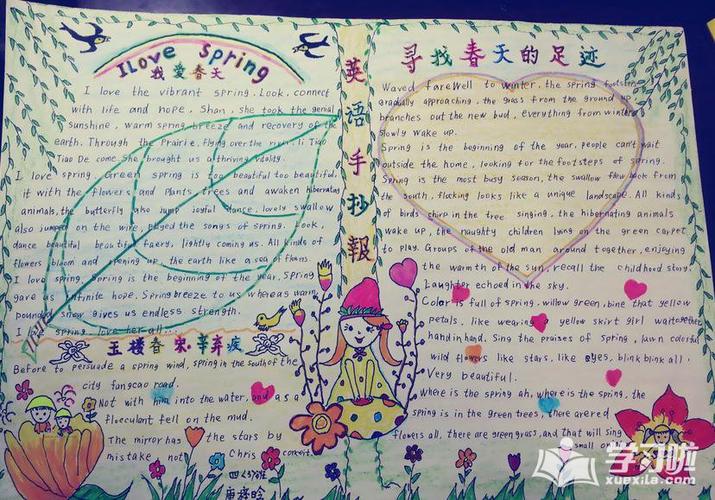 I Love Spring
我爱春天
I love the vibrant spring. Look, connect
with life and hope. Shan, she took the genial
sunshine, warm spring breeze and recovery of the
earth. Through the Prairie, flying over the river, li Tiao
Tiao De come. She brought us a thriving vitality.
I love spring. Green spring is too beautiful too beautiful.
it with the flowers and Plants trees and awaken hibernating
animals, the butterfly jump joyful dance, lovely swallow
also jumped on the wire, played the songs of spring. Look,
dance beautiful beautiful faery, lightly coming us. All kinds of
flowers bloom and opening up, the earth like a sea of flowers.
I love spring. Spring is the beginning of the year. Spring
gave us infinite hope. Spring breeze to us whereas warm,
pound snow gives us endless strength.
I love spring love her all...
玉楼春 宋·辛弃疾
Before to persuade a spring wind, spring in the south of the
city fangcao road.
Not with him into the water, and as a
flocculent fell on the mud.
The mirror has the stars by
mistake not Chris concert.
英语手抄報
寻找春天的足迹
Waved farewell to winter, the spring footsteps
gradually approaching, the grass from the ground up,
branches out the new bud, everything from winter
slowly wake up.
Spring is the beginning of the year, people can't wait
outside the home, looking for the footsteps of spring.
Spring is the most busy season, the swallow flew back from
the South, flocking looks like a unique landscape. All kinds
of birds chirp in the tree singing, the hibernating animals
wake up, the naughty children lying on the green carpet
to play. Groups of the old man around together, enjoying
the warmth of the sun, recall the childhood story.
Laughter echoed in the sky.
Color is full of spring, willow green, bine that yellow
petals, like wearing yellow skirt girl wait together
hand in hand. Sing the praises of spring, lawn colorful
wild flowers like stars, like eyes, blink blink all.
Very beautiful.
where is the spring ah, where is the spring, the
spring is in the green trees, there are red
flowers all, there are green grass, and that will sing
small
学习啦
www.xuexila.com